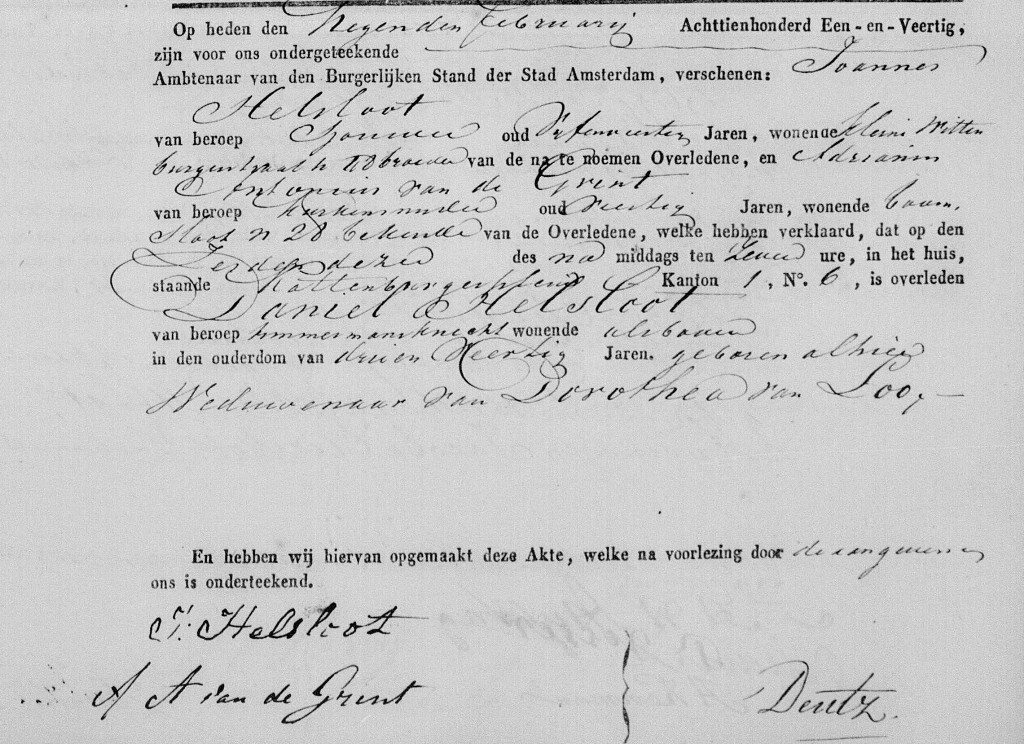 Op heden den Negenden februarij Achttienhonderd Een-en-Veertig,
zijn voor ons ondergeteekende
Ambtenaar van den Burgerlijken Stand der Stad Amsterdam, verschenen: Joannes
Helsloot
van beroep oud Vijfenveertig Jaren, wonende kleine Witten
burgerstraat n 18 broeder van de na te noemen Overledene, en Adrianus
Antonius van de Grint
van beroep oud veertig Jaren, wonende boom,
sloot n 28 bekende van de Overledene, welke hebben verklaard, dat op den
dezer des na middags ten Zeven ure, in het huis,
staande Kattenburgerplein Kanton 1, N°. 6, is overleden
Daniel Helsloot
van beroep timmermansknecht wonende als boven
in den ouderdom van drieen Veertig Jaren. geboren alhier
Weduwenaar van Dorothea van Loo,
En hebben wij hiervan opgemaakt deze Akte, welke na voorlezing door de aangevers
ons is onderteekend.
J: Helsloot
A A van de Grint
Deutz.